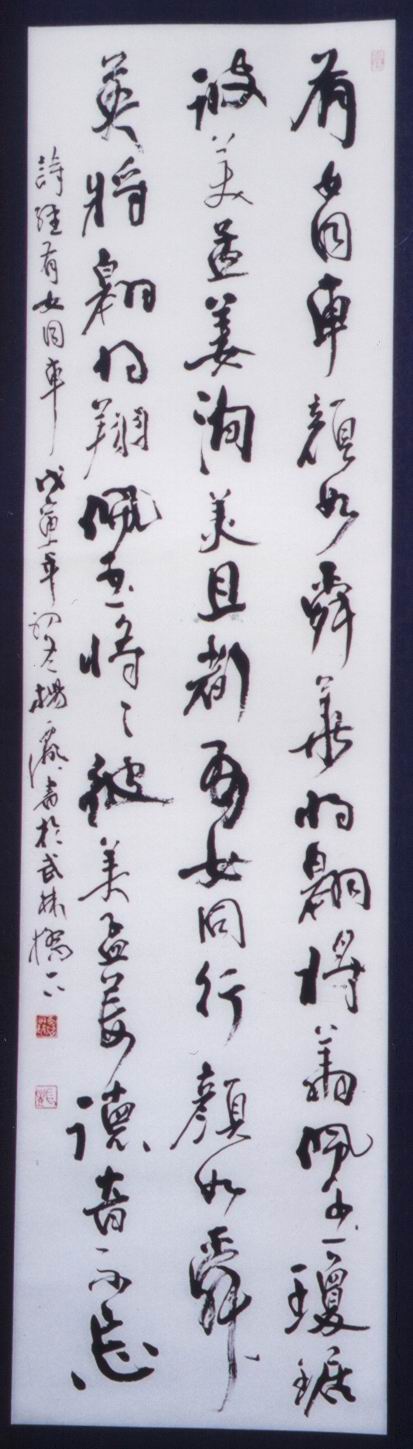 有女同車顏如舜華將翱將翔佩玉瓊琚
彼美孟姜洵美且都有女同行顏如舜
英將翱將翔佩玉將〻彼美孟姜德音不忘
詩經有女同車 戊寅年初冬楊嚴書於武林橋下